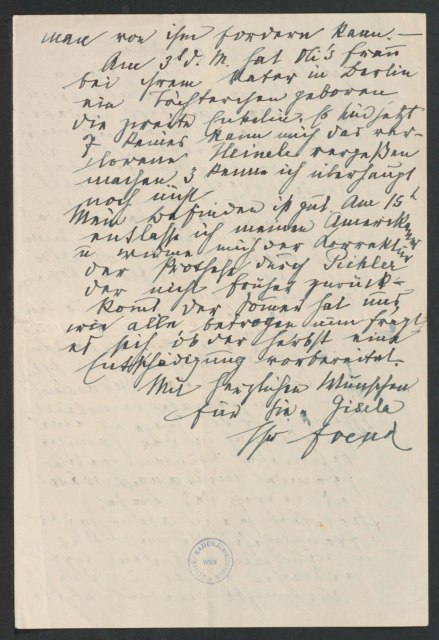 man von ihm fordern kann. —
Am 3t d. M. hat Oli's Frau
bei ihrem Vater in Berlin
ein Töchterchen geboren
die zweite Enkelin. Es sind jetzt
7 Keines kann mich das ver-
lorene Heinele vergeßen
machen, 3 kenne ich überhaupt
noch nicht
Mein Befinden ist gut. Am 15t
entlasse ich meinen Amerikaner
u widme mich der Korrektur
der Prothese durch Pichler
der nicht früher zurück-
kom̄t. Der Som̄er hat uns
wie alle, betrogen nun fragt
es sich, ob der Herbst eine
Entschädigung vorbereitet.
Mit herzlichen Wünschen
für Sie u Gisela
Ihr Freud
NATIONALBIBLIOTHEK
WIEN